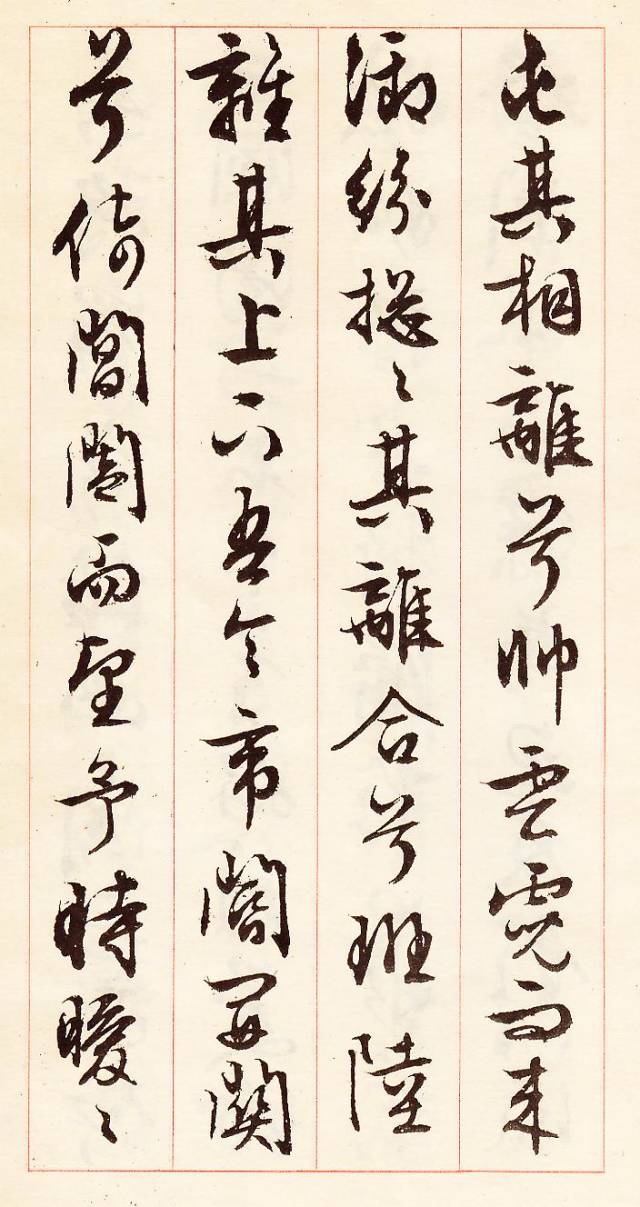 屯其相離兮帥雲霓而來
御紛摠〻其離合兮班陸
離其上下吾令帝閽開關
兮倚閶闔而望予時曖〻